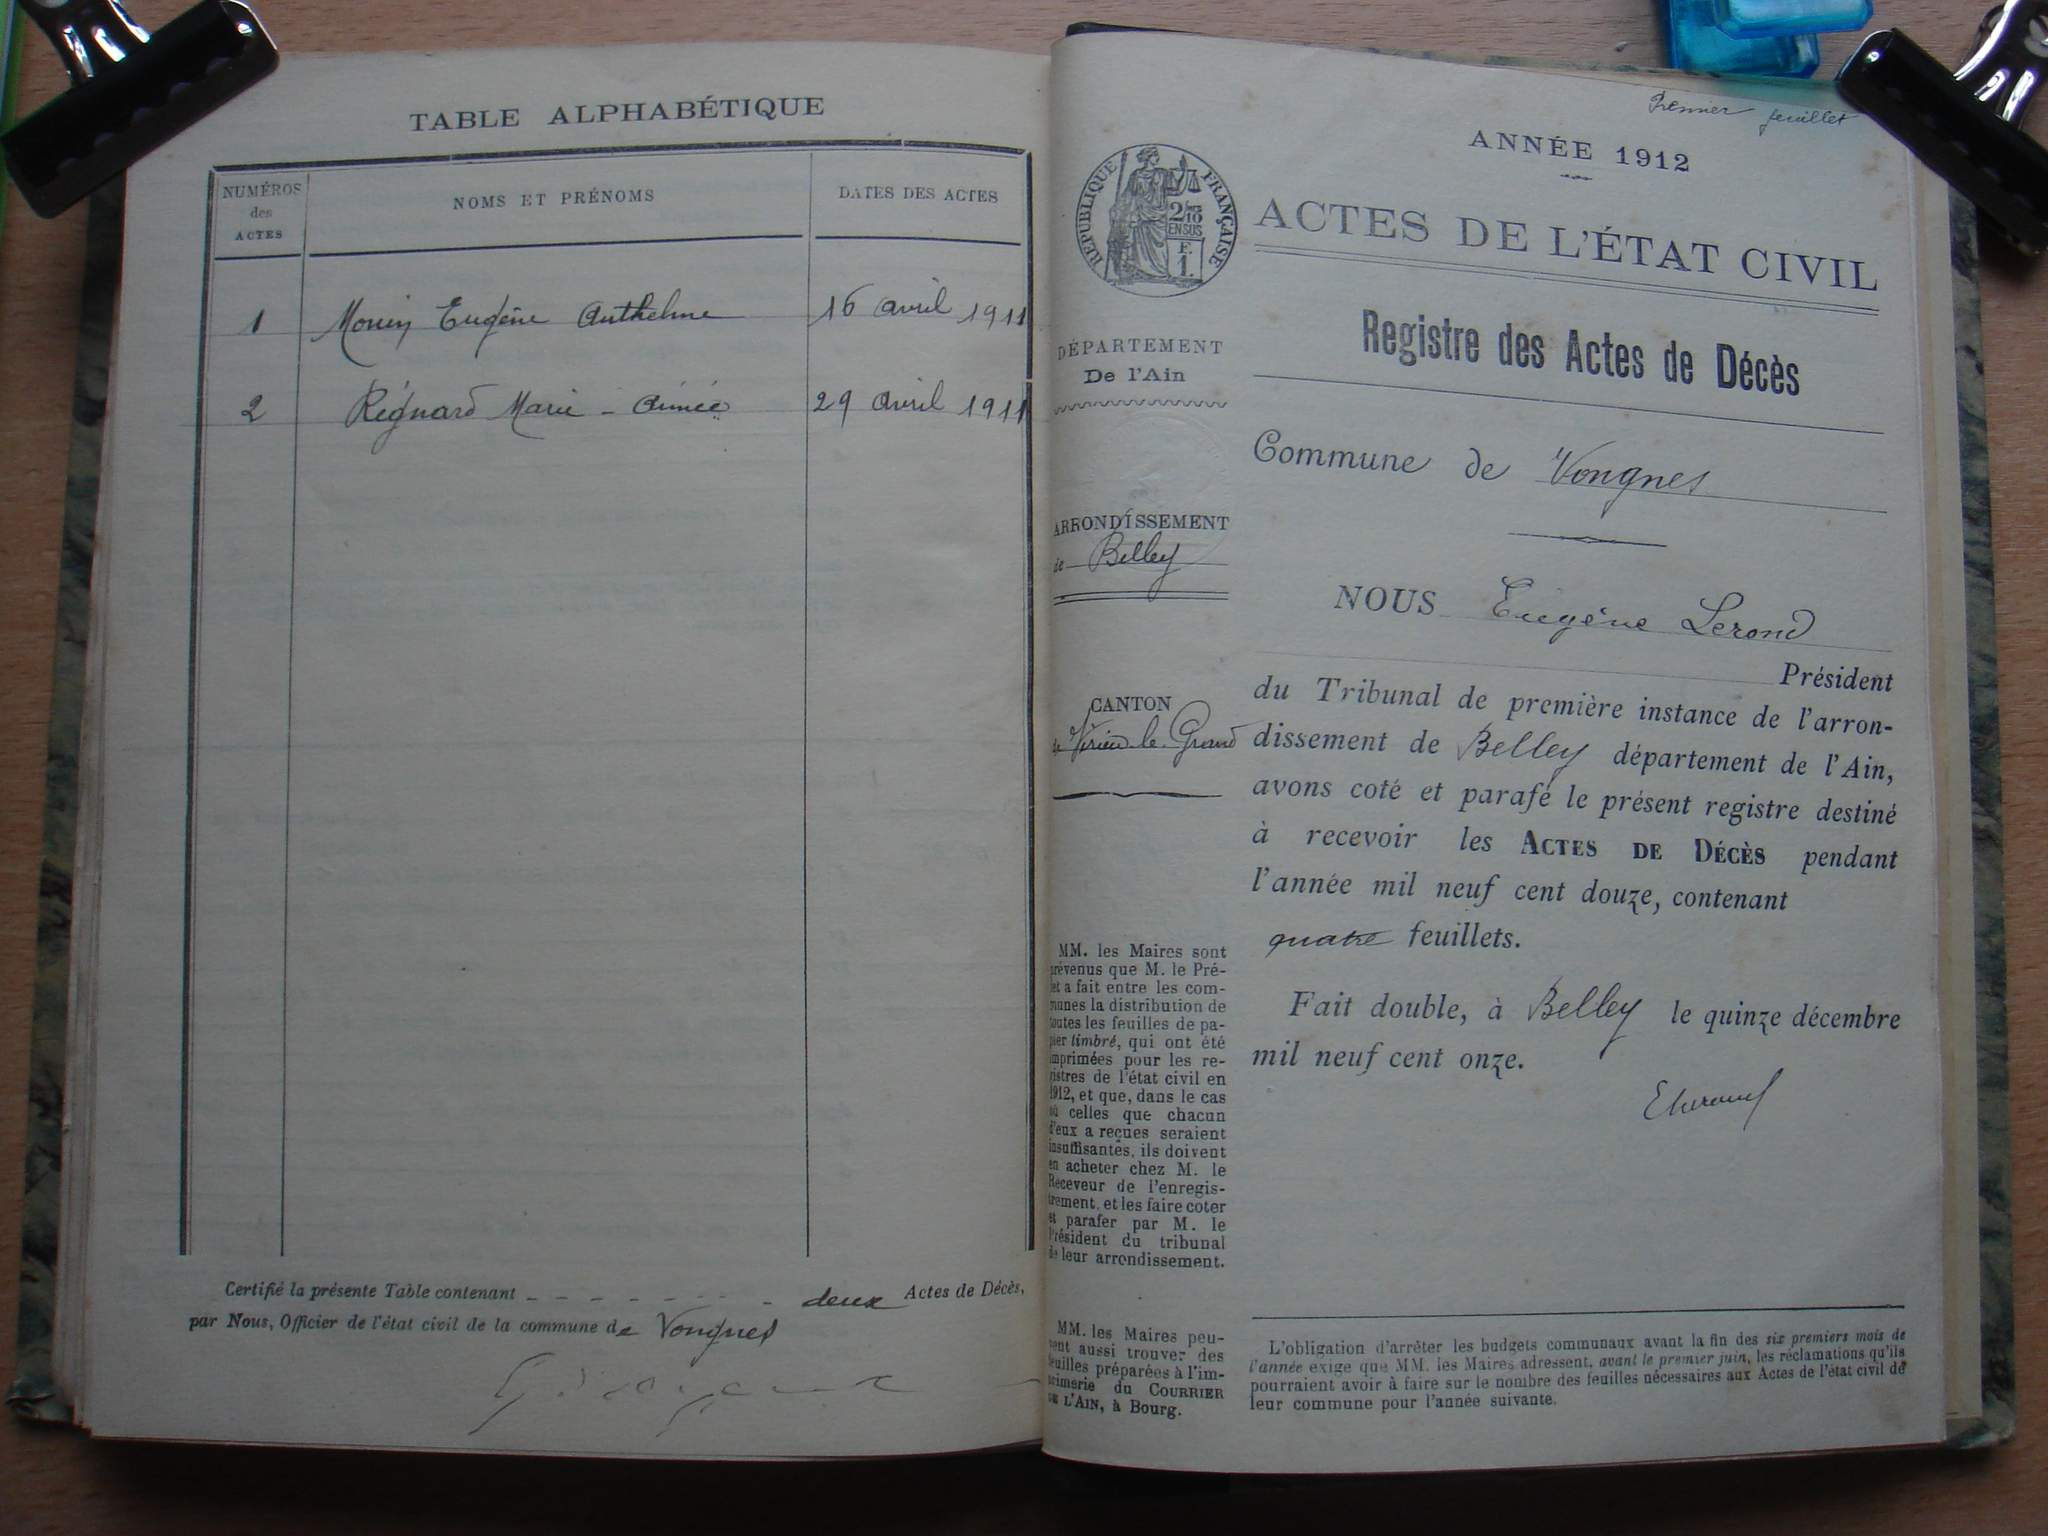 TABLE ALPHABÉTIQUE
NUMÉROS
des
ACTES
NOMS ET PRÉNOMS
DATES DES ACTES
1 Eugène Anthelme 16 avril 1911
2 Réguard Marie - Aimée 29 avril 1911
Certifié la présente Table contenant - - - - - - - - deux Actes de Décès,
par Nous, Officier de l'état civil de la commune de Vongnes
Premier feuillet
ANNÉE 1912
RÉPUBLIQUE FRANÇAISE
2/10
EN SUS
F.
1.
ACTES DE L'ÉTAT CIVIL
Registre des Actes de Décès
DÉPARTEMENT
De l'Ain
Commune de Vongnes
ARRONDISSEMENT
de Belley
NOUS Eugène Lerond
Président
CANTON
de Virieu-le-Grand
du Tribunal de première instance de l'arron-
dissement de Belley département de l'Ain,
avons coté et parafé le présent registre destiné
à recevoir les ACTES DE DÉCÈS pendant
l'année mil neuf cent douze, contenant
quatre feuillets.
Fait double, à Belley le quinze décembre
mil neuf cent onze.
MM. les Maires sont
prévenus que M. le Pré-
fet a fait entre les com-
munes la distribution de
toutes les feuilles de pa-
pier timbré, qui ont été
imprimées pour les re-
gistres de l'état civil en
1912, et que, dans le cas
où celles que chacun
d'eux a reçues seraient
insuffisantes, ils doivent
en acheter chez M. le
Receveur de l'enregis-
trement, et les faire coter
et parafer par M. le
Président du tribunal
de leur arrondissement.
MM. les Maires peu-
vent aussi trouver des
feuilles préparées à l'im-
primerie du COURRIER
DE L'AIN, à Bourg.
L'obligation d'arrêter les budgets communaux avant la fin des six premiers mois de
l'année exige que MM. les Maires adressent, avant le premier juin, les réclamations qu'ils
pourraient avoir à faire sur le nombre des feuilles nécessaires aux Actes de l'état civil de
leur commune pour l'année suivante.